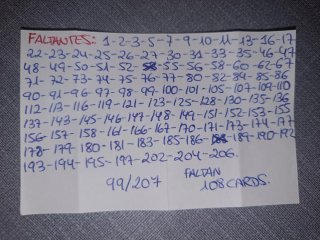 FALTANTES: 1-2-3-5-7-9-10-11-13-16-17
22-23-24-25-26-27-30-31-33-35-46-47
48-49-50-51-52-55-56-58-60-62-67
71-72-73-74-75-76-77-80-82-84-85-86
90-91-96-97-98-99-100-101-105-107-109-110
112-113-116-119-121-123-125-128-130-135-136
137-143-145-146-147-148-149-151-152-153-155
156-157-158-161-166-167-170-171-173-174-177
178-179-180-181-183-185-186-189-190-192
193-194-195-197-202-204-206.
99/207
FALTAN
108 CARDS.